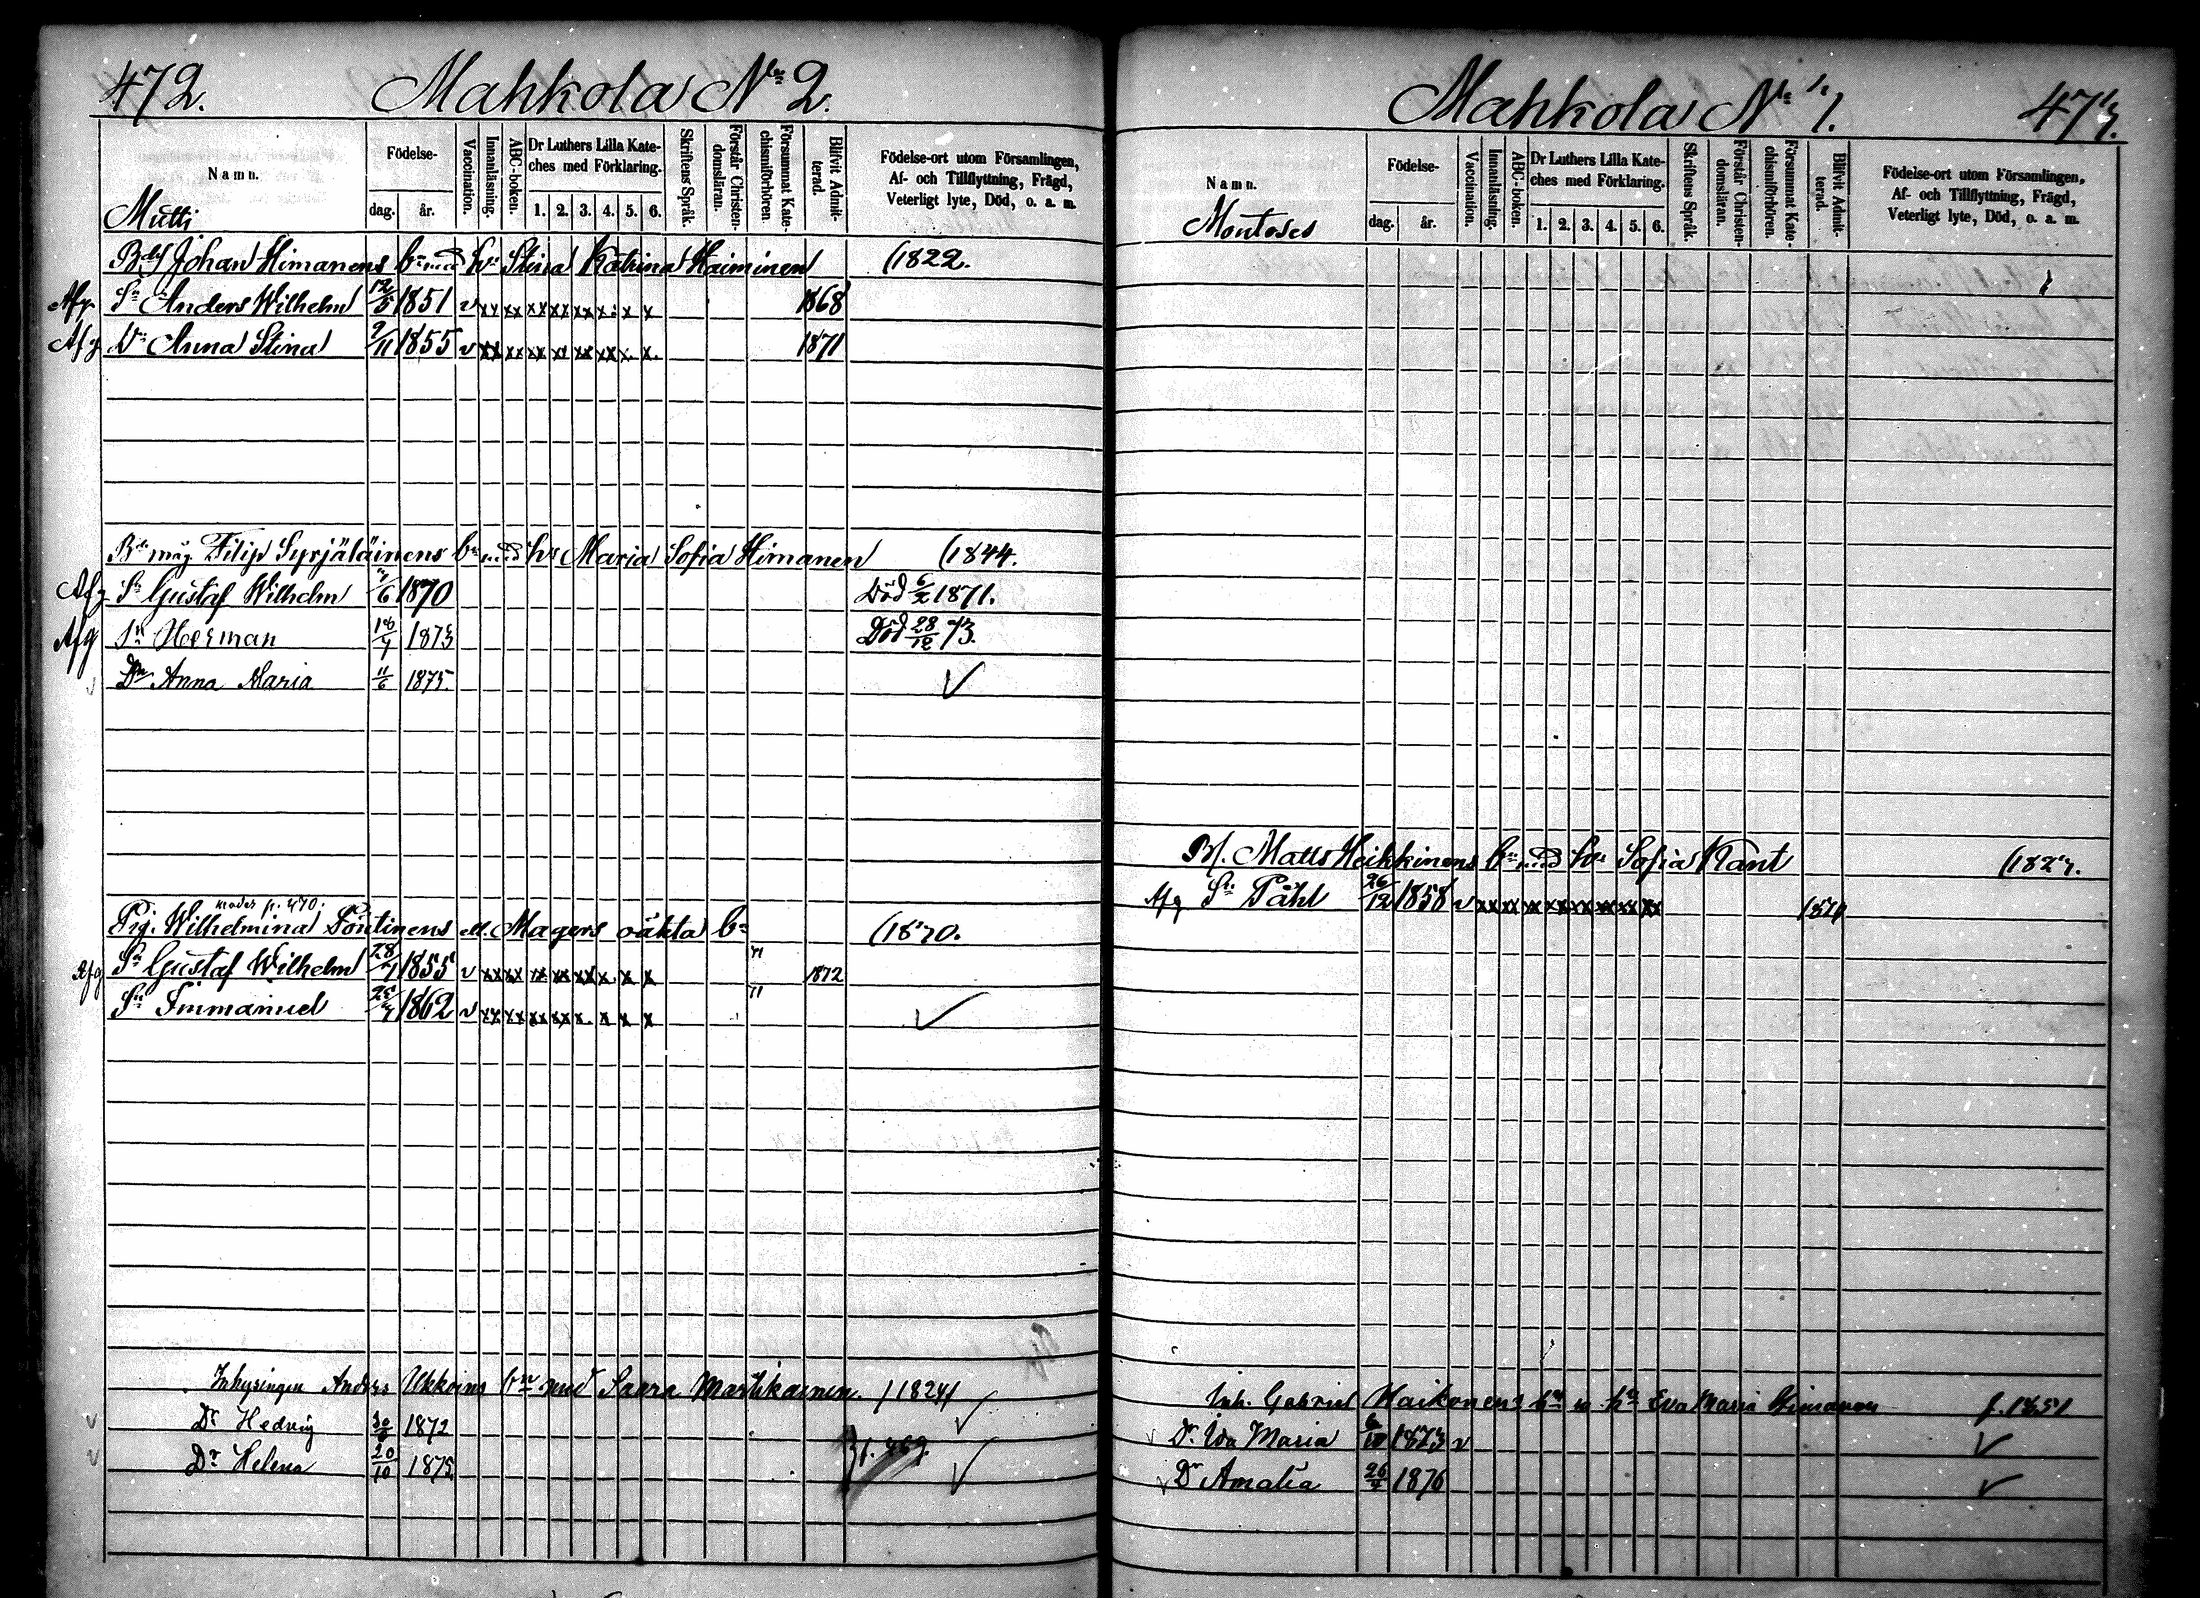 472. Mahkola No 2.
Namn.
Födelse-
dag. år.
Vaccination.
Innanläsning.
ABC-boken.
Dr Luthers Lilla Kate-
ches med Förklaring.
1. 2. 3. 4. 5. 6.
Skriftens Språk.
Förstår Christen-
domsläran.
Försummat Kate-
chismiförhören.
Blifvit Admit-
terad.
Födelse-ort utom Församlingen,
Af- och Tillflyttning, Frägd,
Veterligt lyte, Död, o. a. m.
Mutti
Johan Himanens bn med hu Stina Katrina Haiminen (1822.
Afg. Sn Anders Wilhelm 12/5 1851 v xx xx xx xx xx x x x 1868
Afg Dr Anna Stina 9/11 1855 v xx xx xx xx xx xx x x 1871
Bde måg Filip Syrjäläinens bn med hu Maria Sofia Himanen (1844.
Afg Sn Gustaf Wilhelm /6 1870 Död 6/2 1871.
Afg Sn Herman 18/4 1873 Död 28/12 73.
v Dr Anna Maria 11/6 1875. ✓
moder p. 470.
Pig. Wilhelmina Pöntinens oäkta bn (1870.
Afg Sn Gustaf Wilhelm 28/1 1855 v xx xx xx xx xx x x x 1872
Sn Immanuel 1862 v xx xx xx xx x x x x ✓
Inhysingen Anders Ukkoins bn med Saara Martikainen /1824/ ✓
v Dr Hedvig 1872
v Dr Helena 20/10 1875 ✓
Mahkola No 1. 473.
Namn.
Födelse-
dag. år.
Vaccination.
Innanläsning.
ABC-boken.
Dr Luthers Lilla Kate-
ches med Förklaring.
1. 2. 3. 4. 5. 6.
Skriftens Språk.
Förstår Christen-
domsläran.
Försummat Kate-
chismiförhören.
Blifvit Admit-
terad.
Födelse-ort utom Församlingen,
Af- och Tillflyttning, Frägd,
Veterligt lyte, Död, o. a. m.
Montoses
M. Matts Heikkinens bn med hu Sofia Kant
Afg Sn Påhl 26/12 1858 v xx xx xx xx xx xx xx xx
Inh. Gabriel Maikonens bn m hu Eva Maria Himanen f. 1851
v Dr Ida Maria 6/10 1873 v ✓
v Dr Amalia 1876 ✓